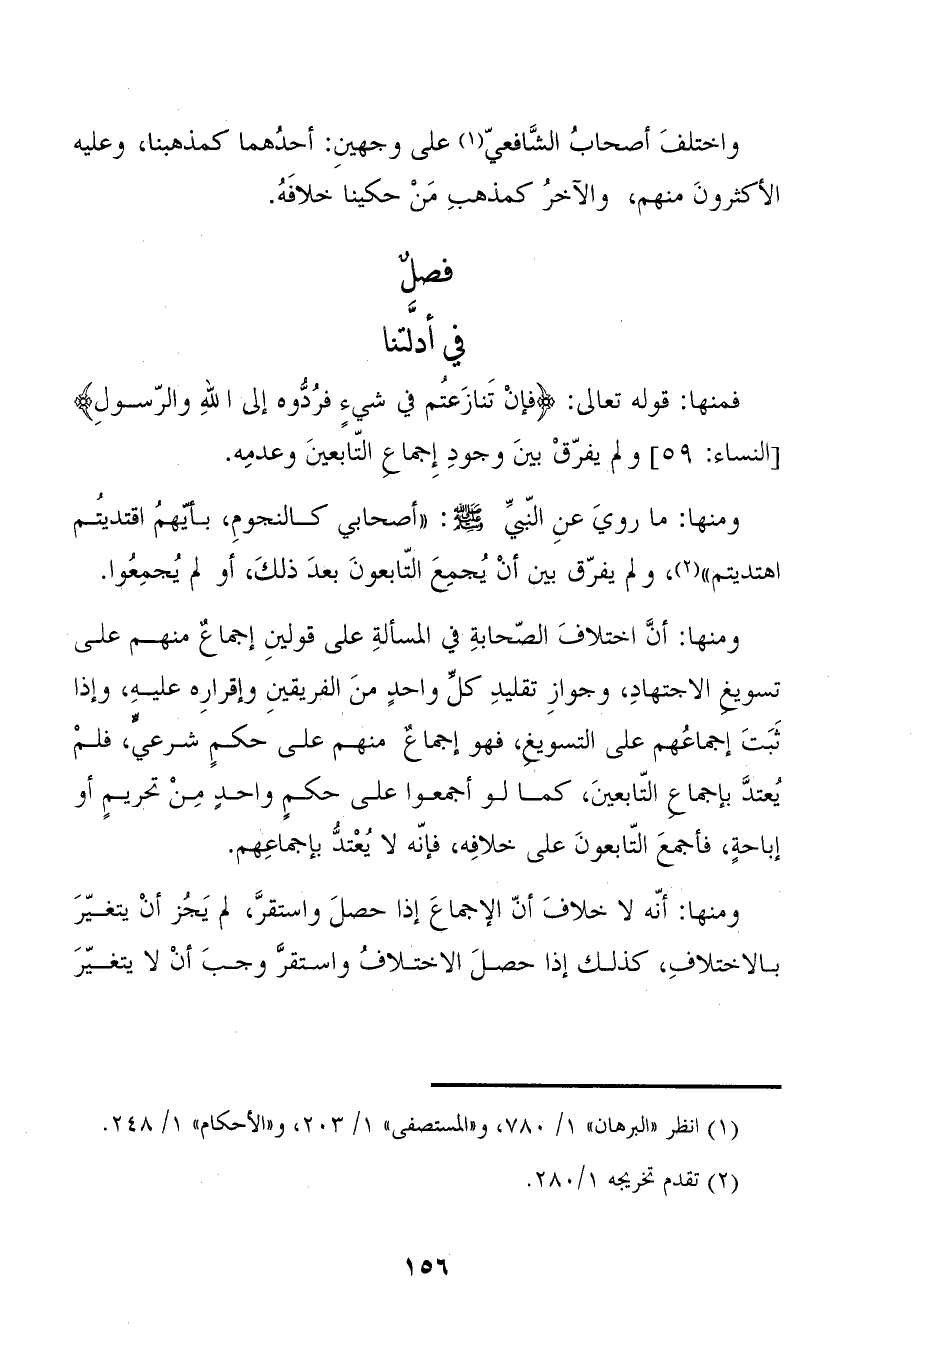 واختلفَ أصحابُ الشَّافعيّ(١) على وجهينِ: أحدُهما كمذهبنا، وعليه
الأكثرونَ منهم، والآخرُ كمذهبِ مَنْ حكينا خلافَهُ.
فصلٌ
في أدلَّتنا
فمنها: قوله تعالى: ﴿فإنْ تَنازَعتُم في شيءٍ فرُدُّوه إلى اللهِ والرّسولِ﴾
[النساء: ٥٩] ولم يفرّقْ بينَ وجودِ إجماعِ التّابعينَ وعدمِه.
ومنها: ما رويَ عنِ النّبيِّ ﷺ: «أصحابي كالنجومِ، بأيّهمُ اقتديتُم
اهتديتم»(٢)، ولم يفرّق بين أنْ يُجمِعَ التّابعونَ بعدَ ذلكَ، أو لم يُجمِعُوا.
ومنها: أنَّ اختلافَ الصّحابةِ في المسألةِ على قولينِ إجماعٌ منهم على
تسويغِ الاجتهادِ، وجوازِ تقليدِ كلِّ واحدٍ منَ الفريقينِ وإقرارِه عليهِ، وإذا
ثَبَتَ إجماعُهم على التسويغِ، فهو إجماعٌ منهم على حكمٍ شرعيٍّ، فلمْ
يُعتدَّ بإجماعِ التّابعينَ، كما لو أجمعوا على حكمٍ واحدٍ مِنْ تحريمٍ أو
إباحةٍ، فأجمعَ التّابعونَ على خلافِه، فإنّه لا يُعْتدُّ بإجماعِهم.
ومنها: أنّه لا خلافَ أنّ الإجماعَ إذا حصلَ واستقرَّ، لم يَجُز أنْ يتغيّرَ
بالاختلافِ، كذلك إذا حصلَ الاختلافُ واستقرَّ وجبَ أنْ لا يتغيّرَ
(١) انظر «البرهان» ١/ ٧٨٠، و«المستصفى» ١/ ٢٠٣، و«الأحكام» ١/ ٢٤٨.
(٢) تقدم تخريجه ١/ ٢٨٠.
١٥٦